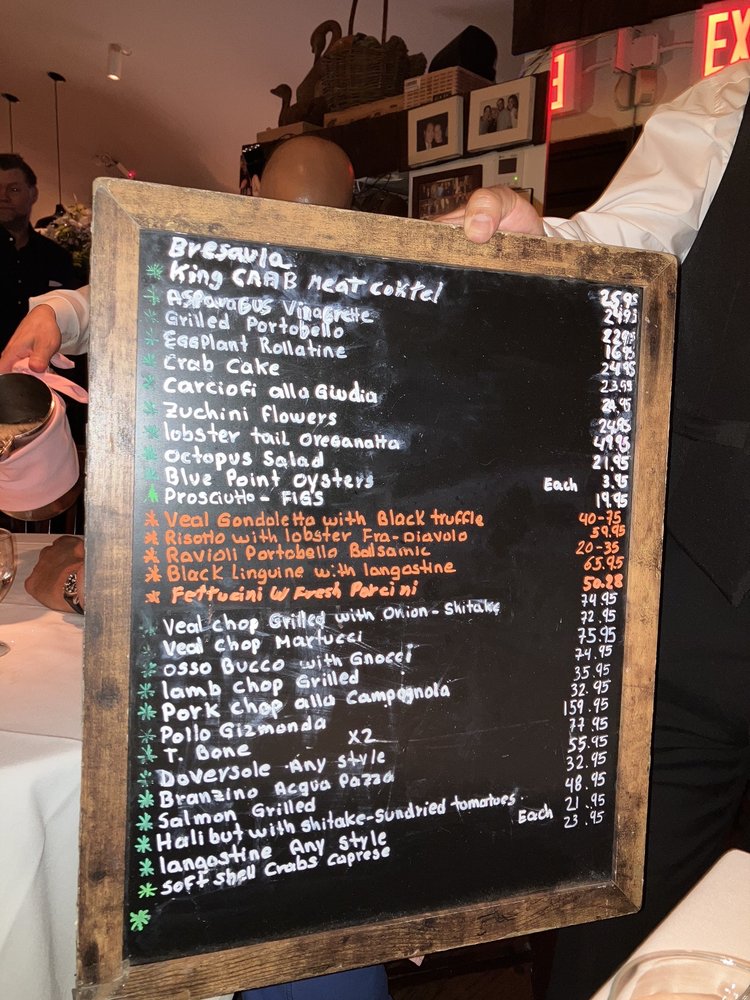 EX
Bresaula 25.95
King CRAB Meat coktel 24.95
Asparagus Vinagrette 22.95
Grilled Portobello 16.95
EGGPlant Rollatine 24.95
Crab Cake 23.95
Carciofi alla Giudia 24.95
Zuchini Flowers 24.95
lobster tail Oreganatta 49.95
Octopus Salad 21.95
Blue Point Oysters Each 3.95
Prosciutto - FIGS 19.95
Veal Gondoletta with Black truffle 40-75
Risotto with lobster Fra-Diavolo 59.95
Ravioli Portobello Balsamic 20-35
Black Linguine with langastine 65.95
Fettucini W Fresh Porcini 50.28
Veal chop Grilled with Onion-Shitake 74.95
Veal chop Martucci 72.95
Osso Bucco with Gnocci 75.95
lamb chop Grilled 74.95
Pork chop alla Campagnola 35.95
Pollo Gizmonda 32.95
T. Bone X2 159.95
Doversole Any style 77.95
Branzino Acqua Pazza 55.95
Salmon Grilled 32.95
Halibut with shitake-sundried tomatoes. 48.95
langastine Any style Each 21.95
Soft Shell Crabs Caprese 23.95